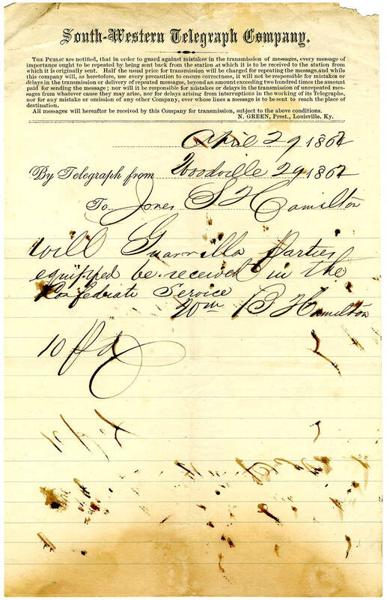 South-Western Telegraph Company.
THE PUBLIC are notified, that in order to guard against mistakes in the transmission of messages, every message of
importance ought to be repeated by being sent back from the station at which it is to be received to the station from
which it is originally sent. Half the usual price for transmission will be charged for repeating the message, and while
this company will, as heretofore, use every precaution to ensure correctness, it will not be responsible for mistakes or
delays in the transmission or delivery of repeated messages, beyond an amount exceeding two hundred times the amount
paid for sending the message; nor will it be responsible for mistakes or delays in the transmission of unrepeated
messages from whatever cause they may arise, nor for delays arising from interruptions in the working of its Telegraphs,
nor for any mistake or omission of any other Company, over whose lines a message is to be sent to reach the place of
destination.
All messages will hereafter be received by this Company for transmission, subject to the above conditions.
N. GREEN, Prest., Louisville, Ky.
April 29 1862
By Telegraph from Woodville 29 1862
To Jones S Hamilton
Will Guerrilla Parties
equipped be received in the
Confederate Service
Wm B Hamilton
10